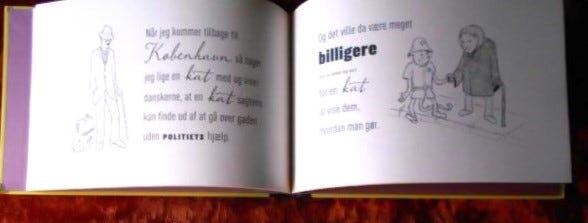 Når jeg kommer tilbage til
København, så tager
jeg lige en kat med og viser
danskerne, at en kat sagtens
kan finde ud af at gå over gaden
uden POLITIETS hjælp.
Og det ville da være meget
billigere
for en kat
at vise dem,
hvordan man gør.